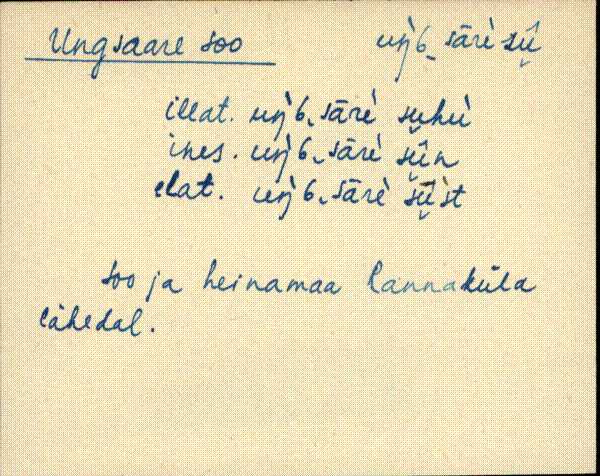 Ungsaare soo uŋ̀G‿sārè sū̬
illat. uŋ̀G‿sārè suhù
ines. uŋ̀G‿sārè sū̬n
elat. uŋ̀G‿sārè sū̬̀st
soo ja heinamaa Rannaküla
lähedal.